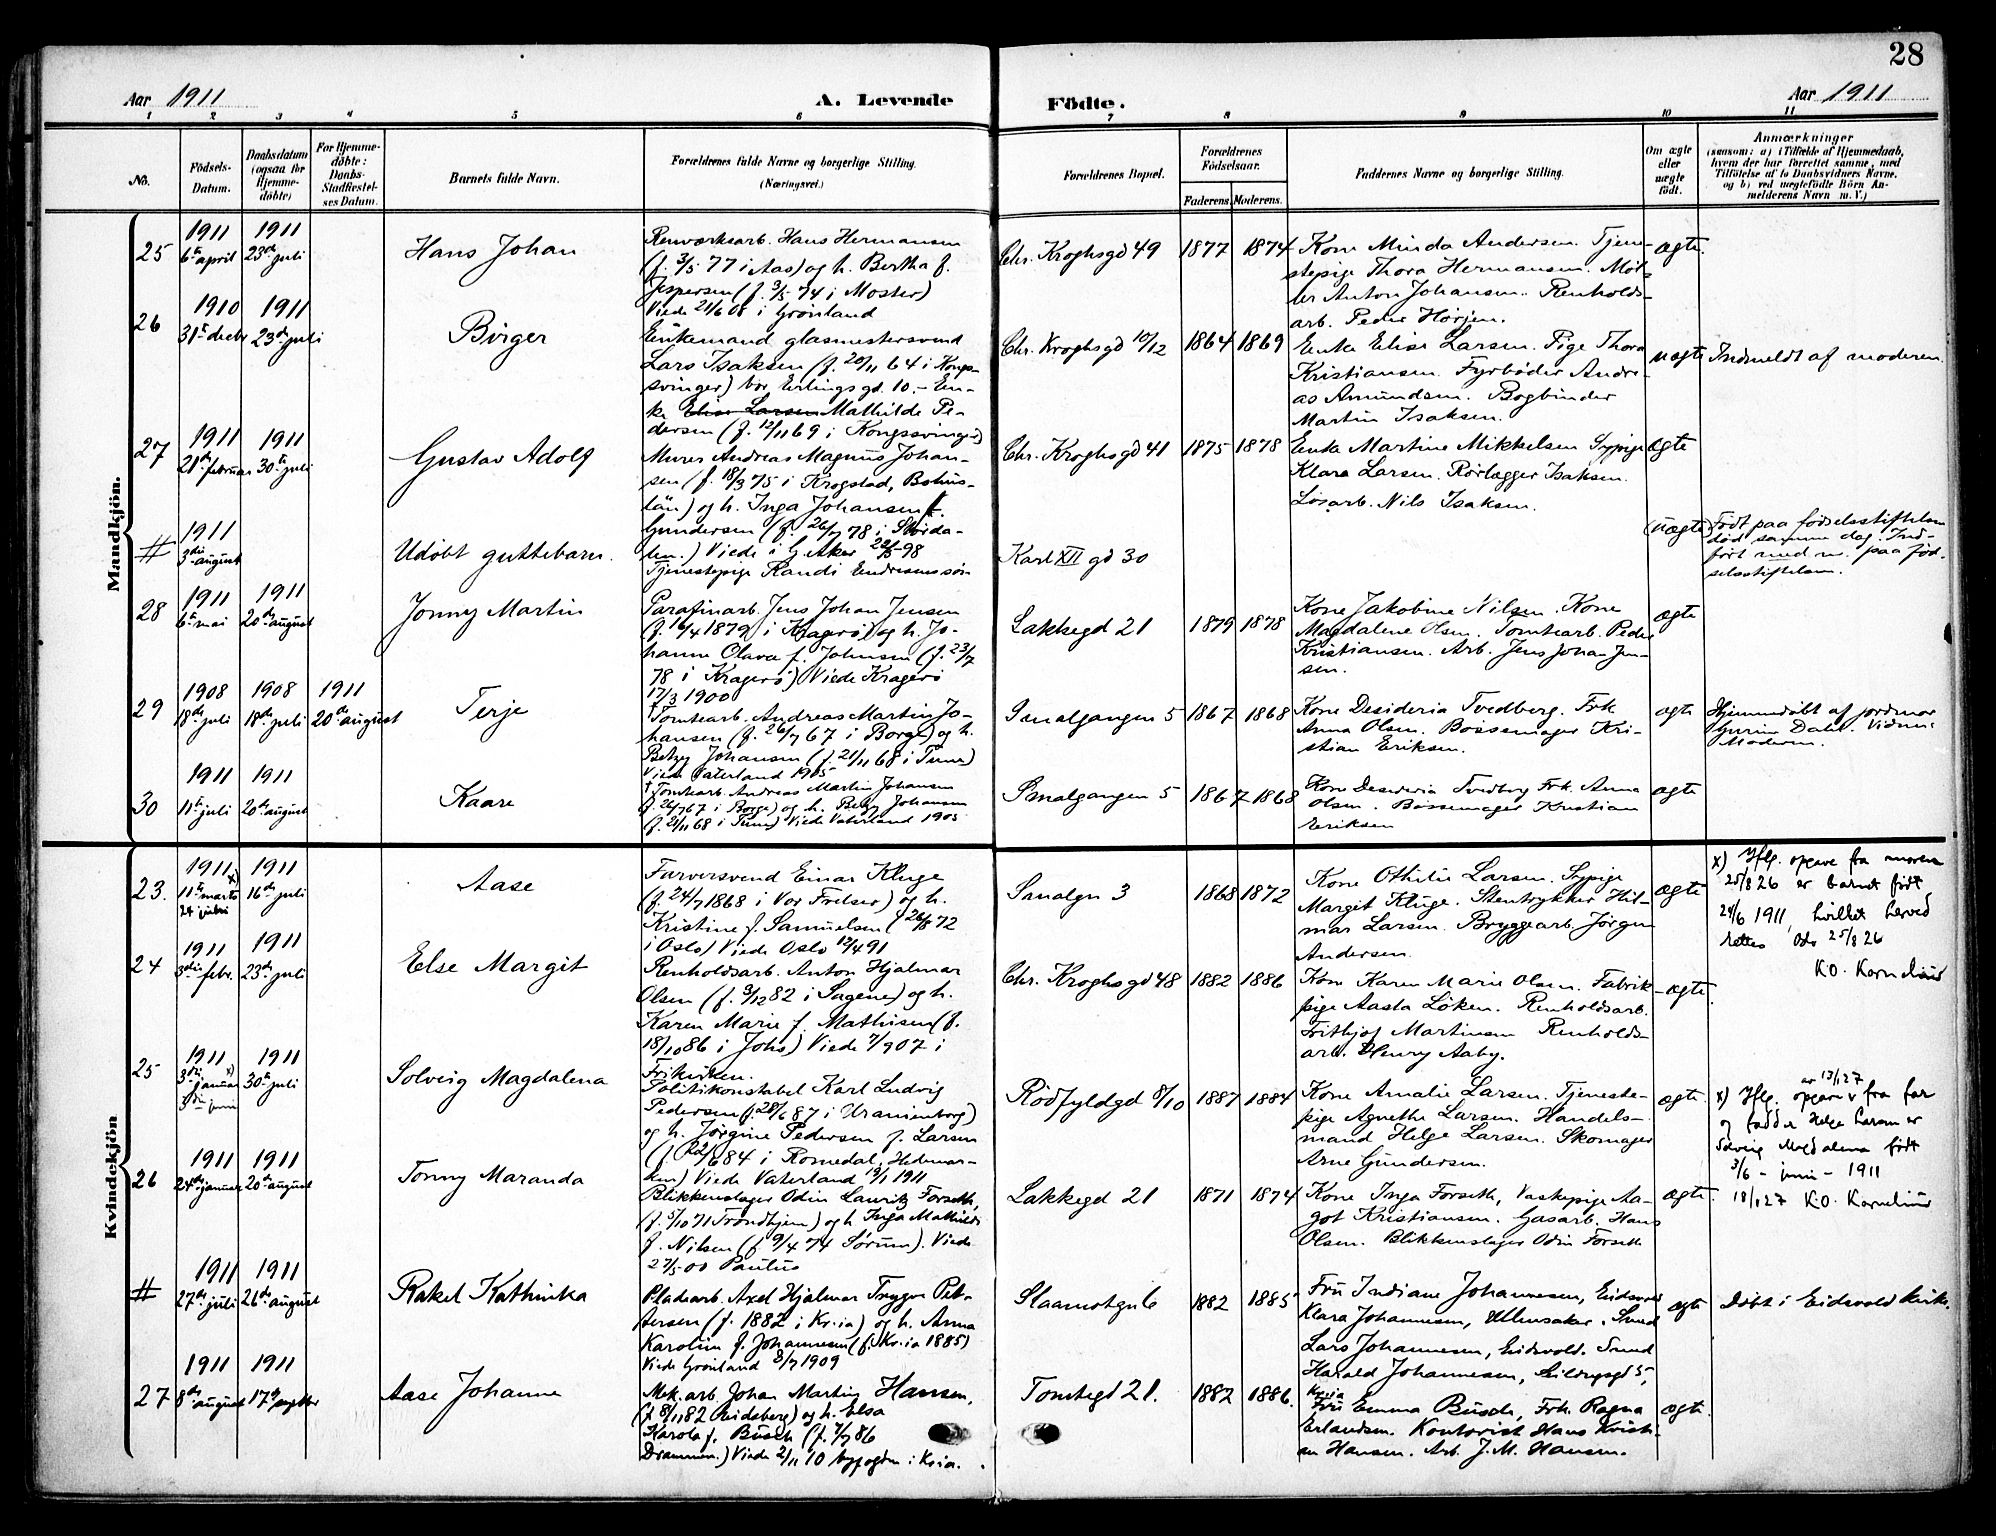 28
Aar 1911
A. Levende
Födte.
Aar 1911
1 2 3 4 5 6 7 8 9 10 11
No.
Födsels-
Datum.
Daabsdatum
(ogsaa for
Hjemme-
döbte)
For Hjemme-
döbte:
Daabs-
Stadfæstel-
ses Datum.
Barnets fulde Navn.
Forældrenes fulde Navne og borgerlige Stilling.
(Næringsvei.)
Forældrenes Bopæl.
Forældrenes
Födselsaar.
Faderens. Moderens.
Faddernes Navne og borgerlige Stilling.
Om ægte
eller
uægte
födt.
Anmærkninger
(saasom: a) i Tilfælde af Hjemmedaab,
hvem der har forrettet samme, med
Tilföielse af to Daabsvidners Navne,
og b) ved uægtefödte Börn An-
melderens Navn m. V.)
Mandkjön.
25
1911
6te april
1911
23de juli
Hans Johan
Renværksarb. Hans Hermansen
(f. 3/5 77 i Aas) og h. Bertha f.
Jespersen (f. 3/5 74 i Moster)
Viede 21/6 08 i Grønland
Chr. Kroghsgd 49
1877
1874
Kone Minda Andersen. Tjene-
stepige Thora Hermansen. Møl-
ler Anton Johansen. Renholds-
arb. Peder Horjen.
ægte.
26
1910
31te decbr
1911
23de juli
Birger
Enkemand glasmestersvend
Lars Isaksen (f. 20/11 64 i Kongs-
svinger) bor Erlingsgd. 10. - En-
ke Elise Larsen Mathilde Pe-
dersen (f. 12/11 69 i Kongssvinger)
Chr. Kroghsgd 10/12
1864
1869
Enke Elise Larsen. Pige Thora
Kristiansen. Fyrbøder Andre-
as Amundsen. Bogbinder
Martin Isaksen.
uægte
Indmeldt af moderen.
27
1911
21de februar
1911
30te juli
Gustav Adolf
Murer Andreas Magnus Johan-
sen (f. 18/3 75 i Krogstad, Bohus-
län) og h. Inga Johansen f.
Gundersen (f. 26/7 78 i
) Viede i G. Aker 22/5 98
Chr. Kroghsgd 41
1875
1878
Enke Martine Mikkelsen Sypige
Klara Larsen. Rørlægger Isaksen.
Løsarb. Nils Isaksen.
ægte
#
1911
3die august
Udøbt guttebarn.
Tjenestepige Randi
Karl XII gd 30
(uægte)
Født paa fødselsstiftelsen
død samme dag. Ind-
ført med no. paa fød-
selsstiftelsen.
28
1911
6te mai
1911
20de august
Jonny Martin
Parafinarb. Jens Johan Jensen
(f. 16/4 1879 i Kragerø) og h. Jo-
hanne Olava f. Johnsen (f. 23/7
78 i Kragerø) Viede Kragerø
17/3 1900
Lakkegd 21
1879
1878
Kone Jakobine Nilsen. Kone
Magdalene Olsen. Tomtearb. Peder
Kristiansen. Arb. Jens Johan Jen-
sen.
ægte
29
1908
18de juli
1908
18de juli
1911
20de august
Terje
Tomtearb. Andreas Martin Jo-
hansen (f. 26/7 67 i Borge) og h.
Betzy Johansen (f. 21/11 68 i Tune)
Viede Vaterland 1905
Smalgangen 5
1867
1868
Kone Desideria Tvedberg. Frk
Anna Olsen. Bøssemager Kri-
stian Eriksen.
ægte
Hjemmedøbt af jordmor
Gurine Dahl. Vidne:
Moderen.
30
1911
11te juli
1911
20de august
Kaare
† Tomtearb. Andreas Martin Johansen
(f. 26/7 67 i Borge) og h. Betzy Johansen
(f. 21/11 68 i Tune) Viede Vaterland 1905
Smalgangen 5
1867
1868
Kone Desideria Tvedberg Frk. Anna
Olsen. Bøssemager Kristian
Eriksen
ægte
Kvindekjön
23.
1911 x)
11te marts
24 juni
1911
16de juli
Aase
Farversvend Einar Kluge
(f. 24/7 1868 i Vor Frelser) og h.
Kristine f. Samuelsen (26/8 72
i Oslo) Viede Oslo 12/4 91
Smalgn 3
1868
1872
Kone Othilie Larsen. Sypige
Margit Kluge. Stentrykker Hil-
mar Larsen. Bryggearb. Jörgen
Andersen.
ægte
x) Iflg. opgave fra moren
25/8 26 er barnet født
24/6 1911, hvilket herved
rettes Oslo 25/8 26
K.O. Kornelius
24
1911
3die febr.
1911
23de juli
Else Margit
Renholdsarb. Anton Hjalmar
Olsen (f. 3/12 82 i Sagene) og h.
Karen Marie f. Mathisen (f.
18/10 86 i Johs) Viede 7/9 07 i
Frikirken.
Chr. Kroghsgd 48
1882
1886
Kone Karen Marie Olsen. Fabrik-
pige Aasta Löken. Renholdsarb.
Fritjof Martinsen Renholds-
arb. Henry Aaby.
ægte.
25
1911
3die januar x)
3die juni
1911
30te juli
Solveig Magdalena
Politikonstabel Karl Ludvig
Pedersen (f. 28/6 87 i Uranienborg)
og h. Jørgine Pedersen f. Larsen
(f. 22/6 84 i Romedal, Hedemar-
ken) Viede Vaterland 19/1 1911
Rödfyldgd 8/10
1887
1884
Kone Amalie Larsen. Tjeneste-
pige Agnethe Larsen. Handels-
mand Helge Larsen. Skomager
Arne Gundersen.
ægte.
av 13/1 27
x) Iflg. opgave fra far
og fadder Helge Larsen er
Solveig Magdalena født
3/6 - juni - 1911
18/1 27 K.O. Kornelius
26
1911
24de januar
1911
20de august
Tonny Maranda
Blikkenslager Odin Lauritz Forseth,
(f. 5/10 71 Trondhjem) og h. Inga Mathilde
f. Nilsen (f. 9/4 74 Sørum). Viede
27/5 00 Paulus
Lakkegd 21
1871
1874
Kone Inga Forseth, Vaskepige Aa-
got Kristiansen. Gasarb. Hans
Olsen. Blikkenslager Odin Forseth
ægte.
#
1911
27de juli
1911
26de august
Rakel Kathinka
Pladearb. Axel Hjalmar Trygve Pet-
tersen (f. 1882 i Kr.ia) og h. Anna
Karoline f. Johannesen (f. Kr.ia 1885)
Viede Grønland 8/7 1909
Slaamotgn 6
1882
1885
Fru Indiane Johannesen, Eidsvold
Klara Johannesen, Ullensaker. Smed
Lars Johannesen, Eidsvold. Smed
Harald Johannesen, 5,
Kr.ia
ægte
Døbt i Eidsvold kirke.
27
1911
8de august
1911
17de septbr
Aase Johanne
Mek. arb. Johan Martin Hansen,
(f. 8/11 82 Eidsberg) og h. Elsa
Karola f. Busch (f. 7/7 86
Drammen.) Viede 2/11 10 byfogden i Kr.ia.
Tomtegd 21.
1882
1886.
Fru Emma Busch, Frk. Ragna
Erlandsen. Kontorist Hans Kristi-
an Hansen. Arb. J.M. Hansen.
ægte.